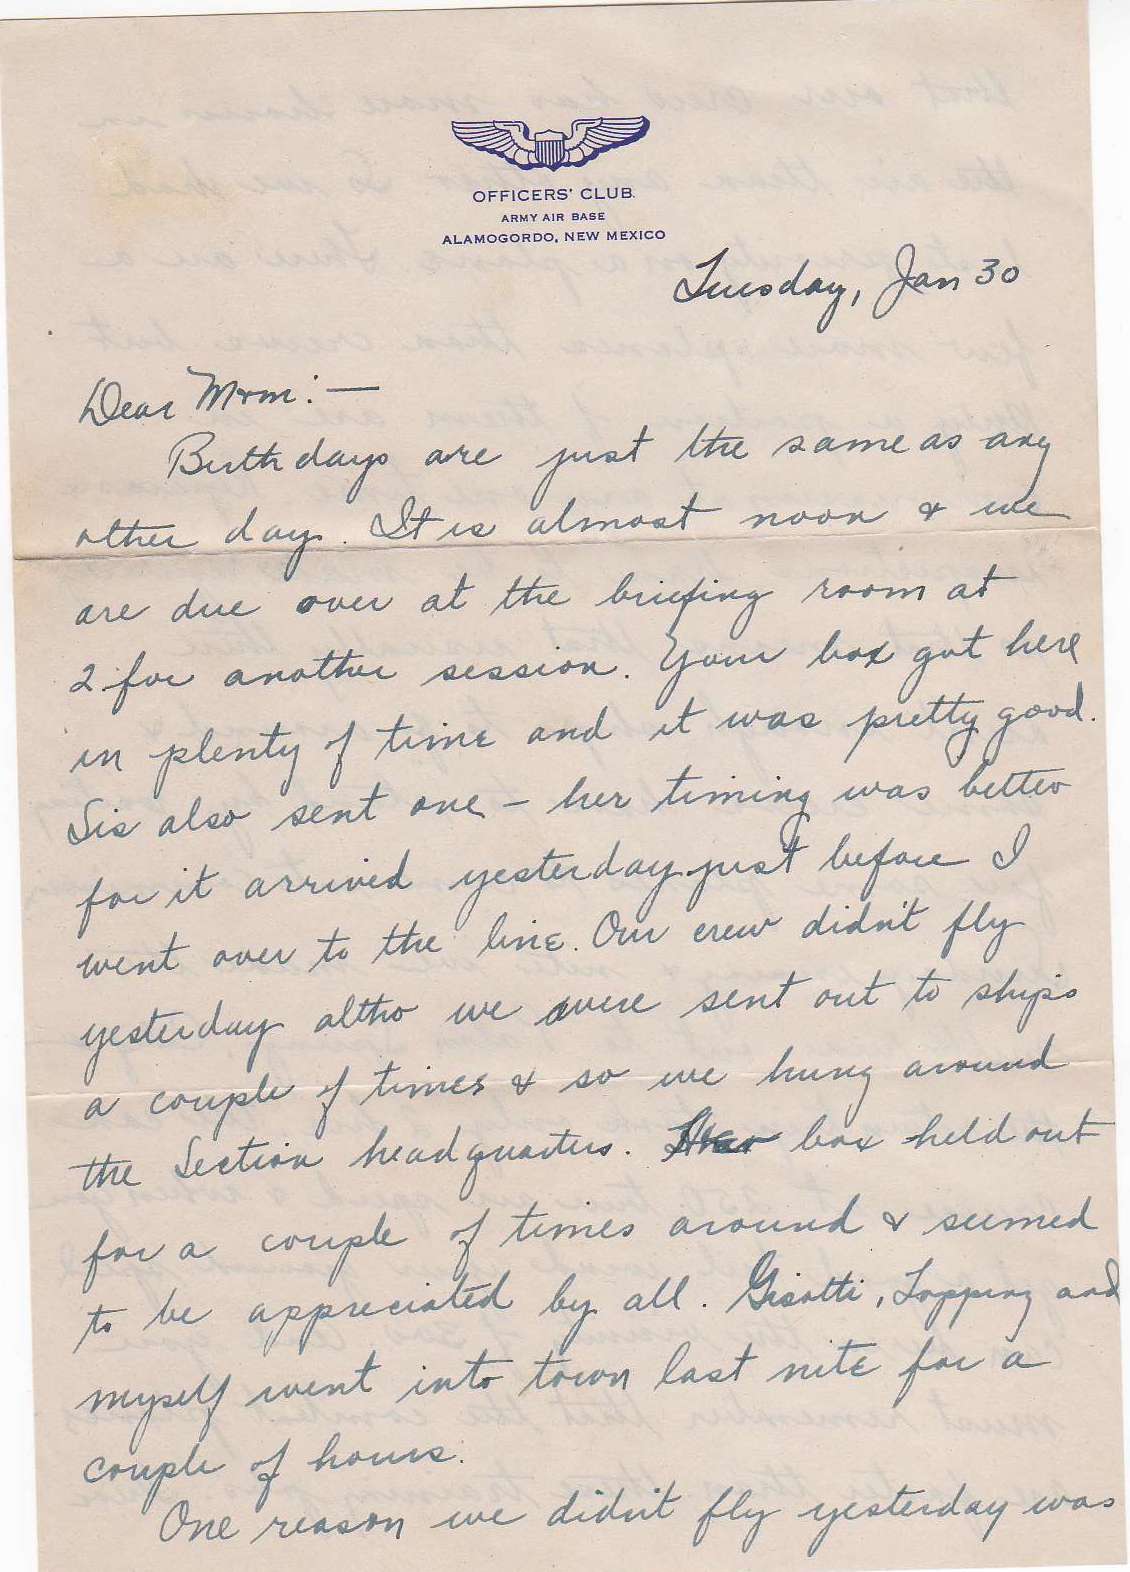 OFFICERS' CLUB
ARMY AIR BASE
ALAMOGORDO, NEW MEXICO
Tuesday, Jan 30
Dear Mom: —
Birthdays are just the same as any
other day. It is almost noon & we
are due over at the briefing room at
2 for another session. Your box got here
in plenty of time and it was pretty good.
Sis also sent one – her timing was better
for it arrived yesterday just before I
went over to the line. Our crew didn't fly
yesterday altho we were sent out to ships
a couple of times & so we hung around
the Section headquarters. box held out
for a couple of times around & seemed
to be appreciated by all. Gisotti, Topping and
myself went into town last nite for a
couple of hours.
One reason we didn't fly yesterday was